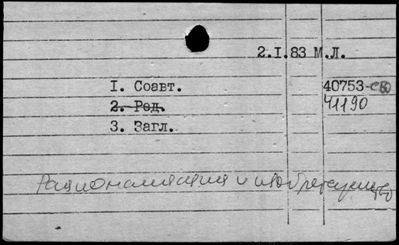 2.I.83 М.Л.
I. Соавт. 40753-св
2. Ред. 41190
3. Загл.
Рационализация и изобретательство